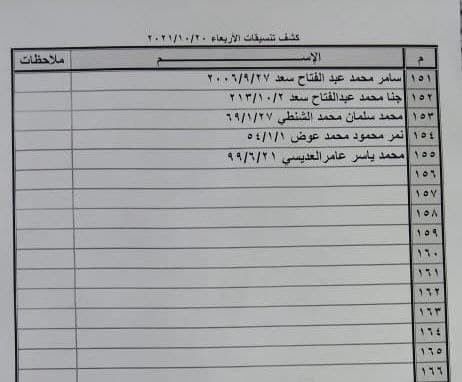 كشف تنسيقات الأربعاء ٢٠٢١/١٠/٢٠
م الإســـــــــم ملاحظات
١٥١ سامر محمد عبد الفتاح سعد ٢٠٠٦/٩/٢٧
١٥٢ جنا محمد عبدالفتاح سعد ٢١٣/١٠/٢
١٥٣ محمد سلمان محمد الشنطي ٦٩/١/٢٧
١٥٤ نمر محمود محمد عوض ٥٤/١/١
١٥٥ محمد ياسر عامرالعديسي ٩٩/٦/٢١
١٥٦
١٥٧
١٥٨
١٥٩
١٦٠
١٦١
١٦٢
١٦٣
١٦٤
١٦٥
١٦٦